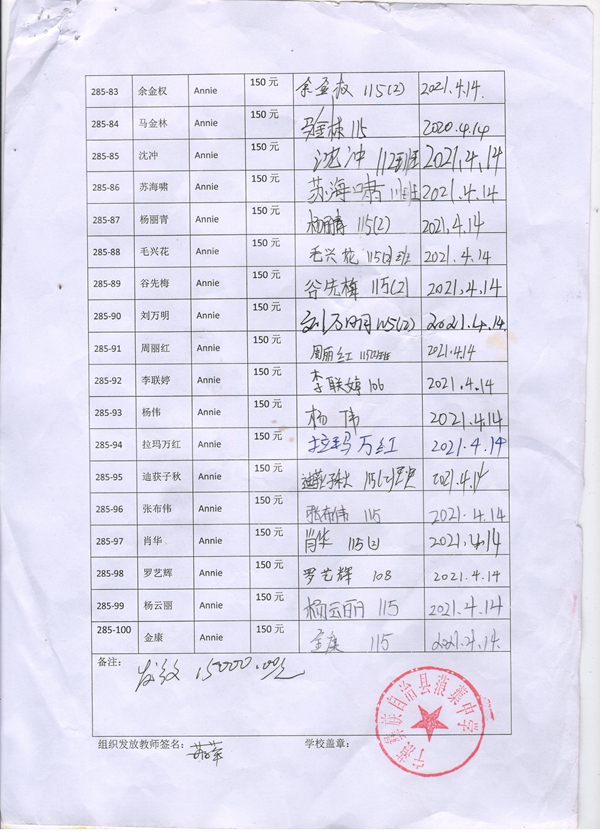 285-83 余金权 Annie 150 元 余金权 115(2) 2021.4.14.
285-84 马金林 Annie 150 元 马金林 115 2020.4.14
285-85 沈冲 Annie 150 元 沈冲 112班 2021.4.14
285-86 苏海啸 Annie 150 元 苏海啸 2021.4.14
285-87 杨丽青 Annie 150 元 杨丽青 115(2) 2021.4.14
285-88 毛兴花 Annie 150 元 毛兴花 115(2)班 2021.4.14
285-89 谷先梅 Annie 150 元 谷先梅 115(2) 2021.4.14
285-90 刘万明 Annie 150 元 刘万明 115(2) 2021.4.14.
285-91 周丽红 Annie 150 元 周丽红 2021.4.14
285-92 李联婷 Annie 150 元 李联婷 106 2021.4.14
285-93 杨伟 Annie 150 元 杨伟 2021.4.14
285-94 拉玛万红 Annie 150 元 拉玛万红 2021.4.14
285-95 迪荻子秋 Annie 150 元 迪荻子秋 115(2) 2021.4.14
285-96 张布伟 Annie 150 元 张布伟 115 2021.4.14
285-97 肖华 Annie 150 元 肖华 115(2) 2021.4.14
285-98 罗艺辉 Annie 150 元 罗艺辉 108 2021.4.14
285-99 杨云丽 Annie 150 元 杨云丽 115 2021.4.14
285-100 金康 Annie 150 元 金康 115 2021.4.14.
备注：
发放 15000.00元
组织发放教师签名： 学校盖章：
宁蒗彝族自治县 中学